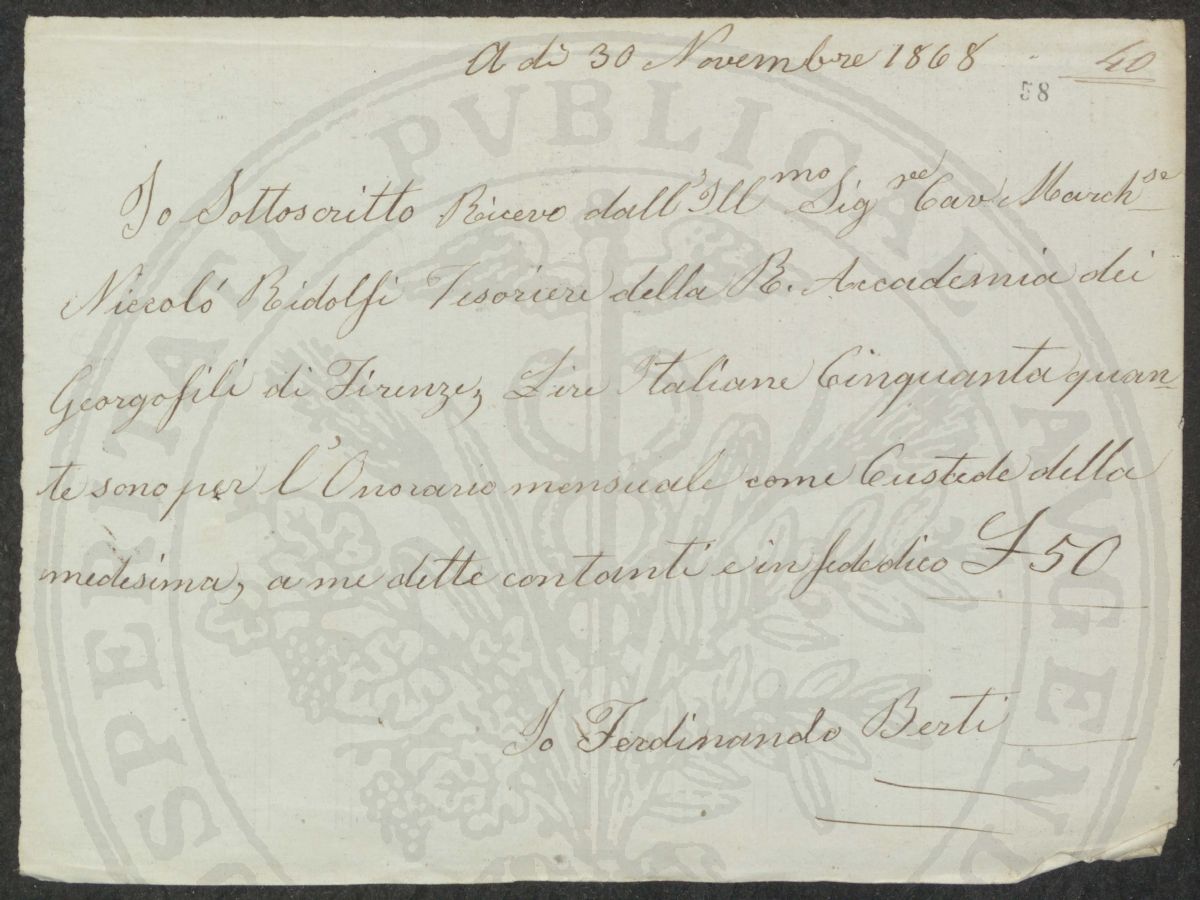 A dì 30 Novembre 1868
40
58
Io Sottoscritto Ricevo dall'Ill^mo Sig^re Cav March^se
Niccoló Ridolfi Tesoriere della R. Accademia dei
Georgofili di Firenze, Lire Italiane Cinquanta quan-
te sono per l'Onorario mensuale come Custode della
medesima, a me dette contanti e in fede dico £ 50
Io Ferdinando Berti
PROSPERITATI PUBLICAE AUGENDAE